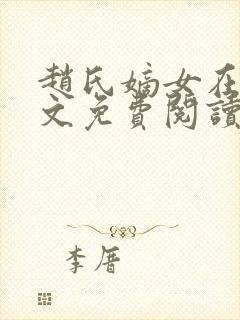 趙氏嫡女在
文免費閱讀
李厝